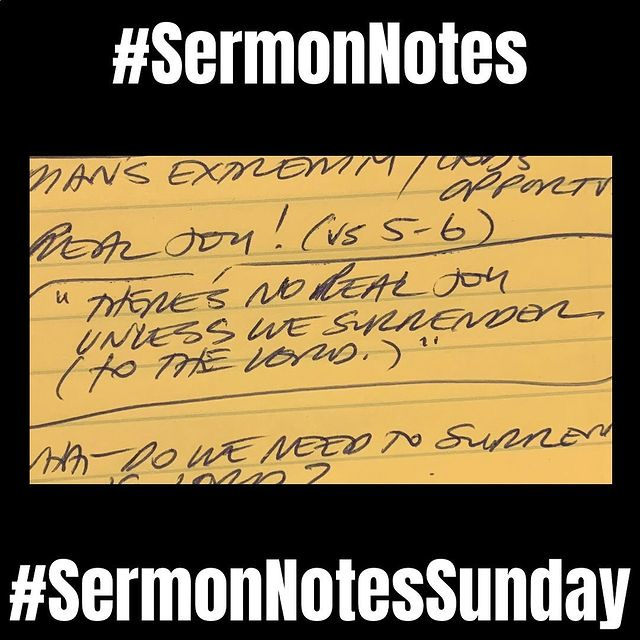 #SermonNotes
MAN'S EXTREMITY /
OPPORTU
REAL JOY! (VS 5-6)
"THERE'S NO REAL JOY
UNLESS WE SURRENDER
(TO THE LORD.)"
DO WE NEED TO SURREN
LORD?
#SermonNotesSunday